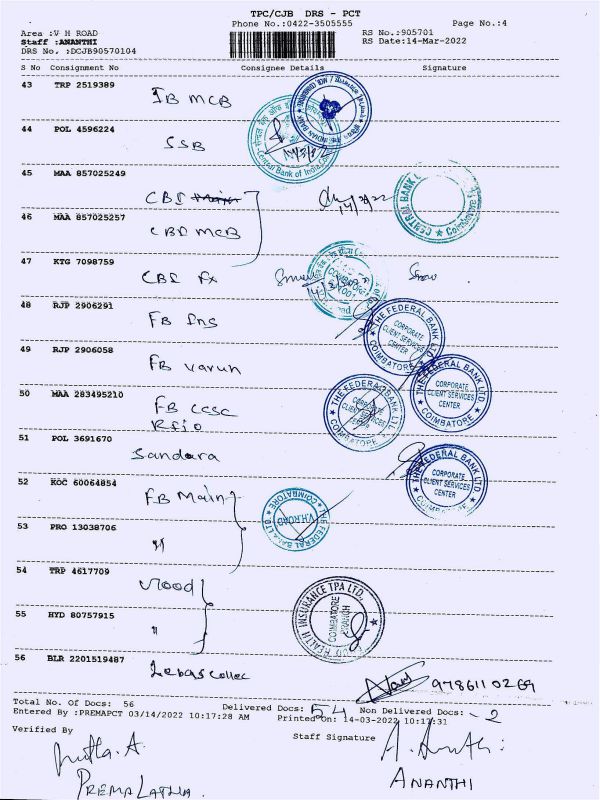 TPC/CJB DRS - PCT
Phone No.:0422-3505555
Page No.:4
Area :V H ROAD
RS No.:905701
Staff :ANANTHI
RS Date:14-Mar-2022
DRS No. :DCJB90570104
S No Consignment No Consignee Details Signature
43 TRP 2519389
IB MCB
44 POL 4596224
SSB
45 MAA 857025249
CBI Main
46 MAA 857025257
CBI MCB
47 KTG 7098759
CBI Fx
48 RJP 2906291
FB Ins
THE FEDERAL BANK LTD
CORPORATE
CLIENT SERVICES
CENTER
COIMBATORE
49 RJP 2906058
FB Varun
THE FEDERAL BANK LTD
CORPORATE
CLIENT SERVICES
CENTER
COIMBATORE
50 MAA 283495210
FB CCSC
THE FEDERAL BANK LTD
CORPORATE
CLIENT SERVICES
CENTER
COIMBATORE
51 POL 3691670
Sandara
THE FEDERAL BANK LTD
CORPORATE
CLIENT SERVICES
CENTER
COIMBATORE
52 KOC 60064854
FB Main
V.H.ROAD
COIMBATORE
53 PRO 13038706
"
54 TRP 4617709
55 HYD 80757915
"
HEALTH INSURANCE TPA LTD.
COIMBATORE
BRANCH
56 BLR 2201519487
9786110269
Total No. Of Docs: 56
Delivered Docs: 54
Non Delivered Docs: - 2
Entered By :PREMAPCT 03/14/2022 10:17:28 AM
Printed On: 14-03-2022 10:17:31
Verified By
Staff Signature
PREMALATHA.
ANANTHI